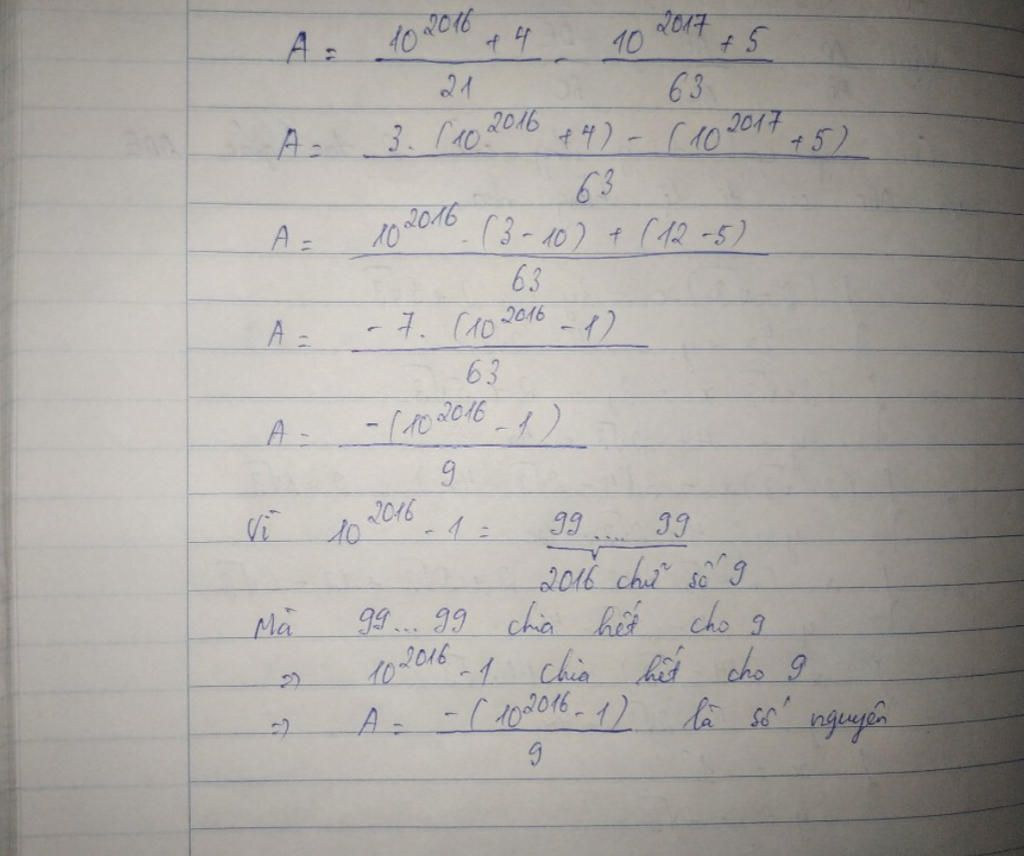 A = \frac{10^{2016} + 4}{21} - \frac{10^{2017} + 5}{63}
A = \frac{3 . (10^{2016} + 4) - (10^{2017} + 5)}{63}
A = \frac{10^{2016} . (3 - 10) + (12 - 5)}{63}
A = \frac{- 7 . (10^{2016} - 1)}{63}
A = \frac{-(10^{2016} - 1)}{9}
Vì 10^{2016} - 1 = 99 .... 99
2016 chữ số 9
Mà 99...99 chia hết cho 9
=> 10^{2016} - 1 chia hết cho 9
=> A = \frac{-(10^{2016} - 1)}{9} là số nguyên